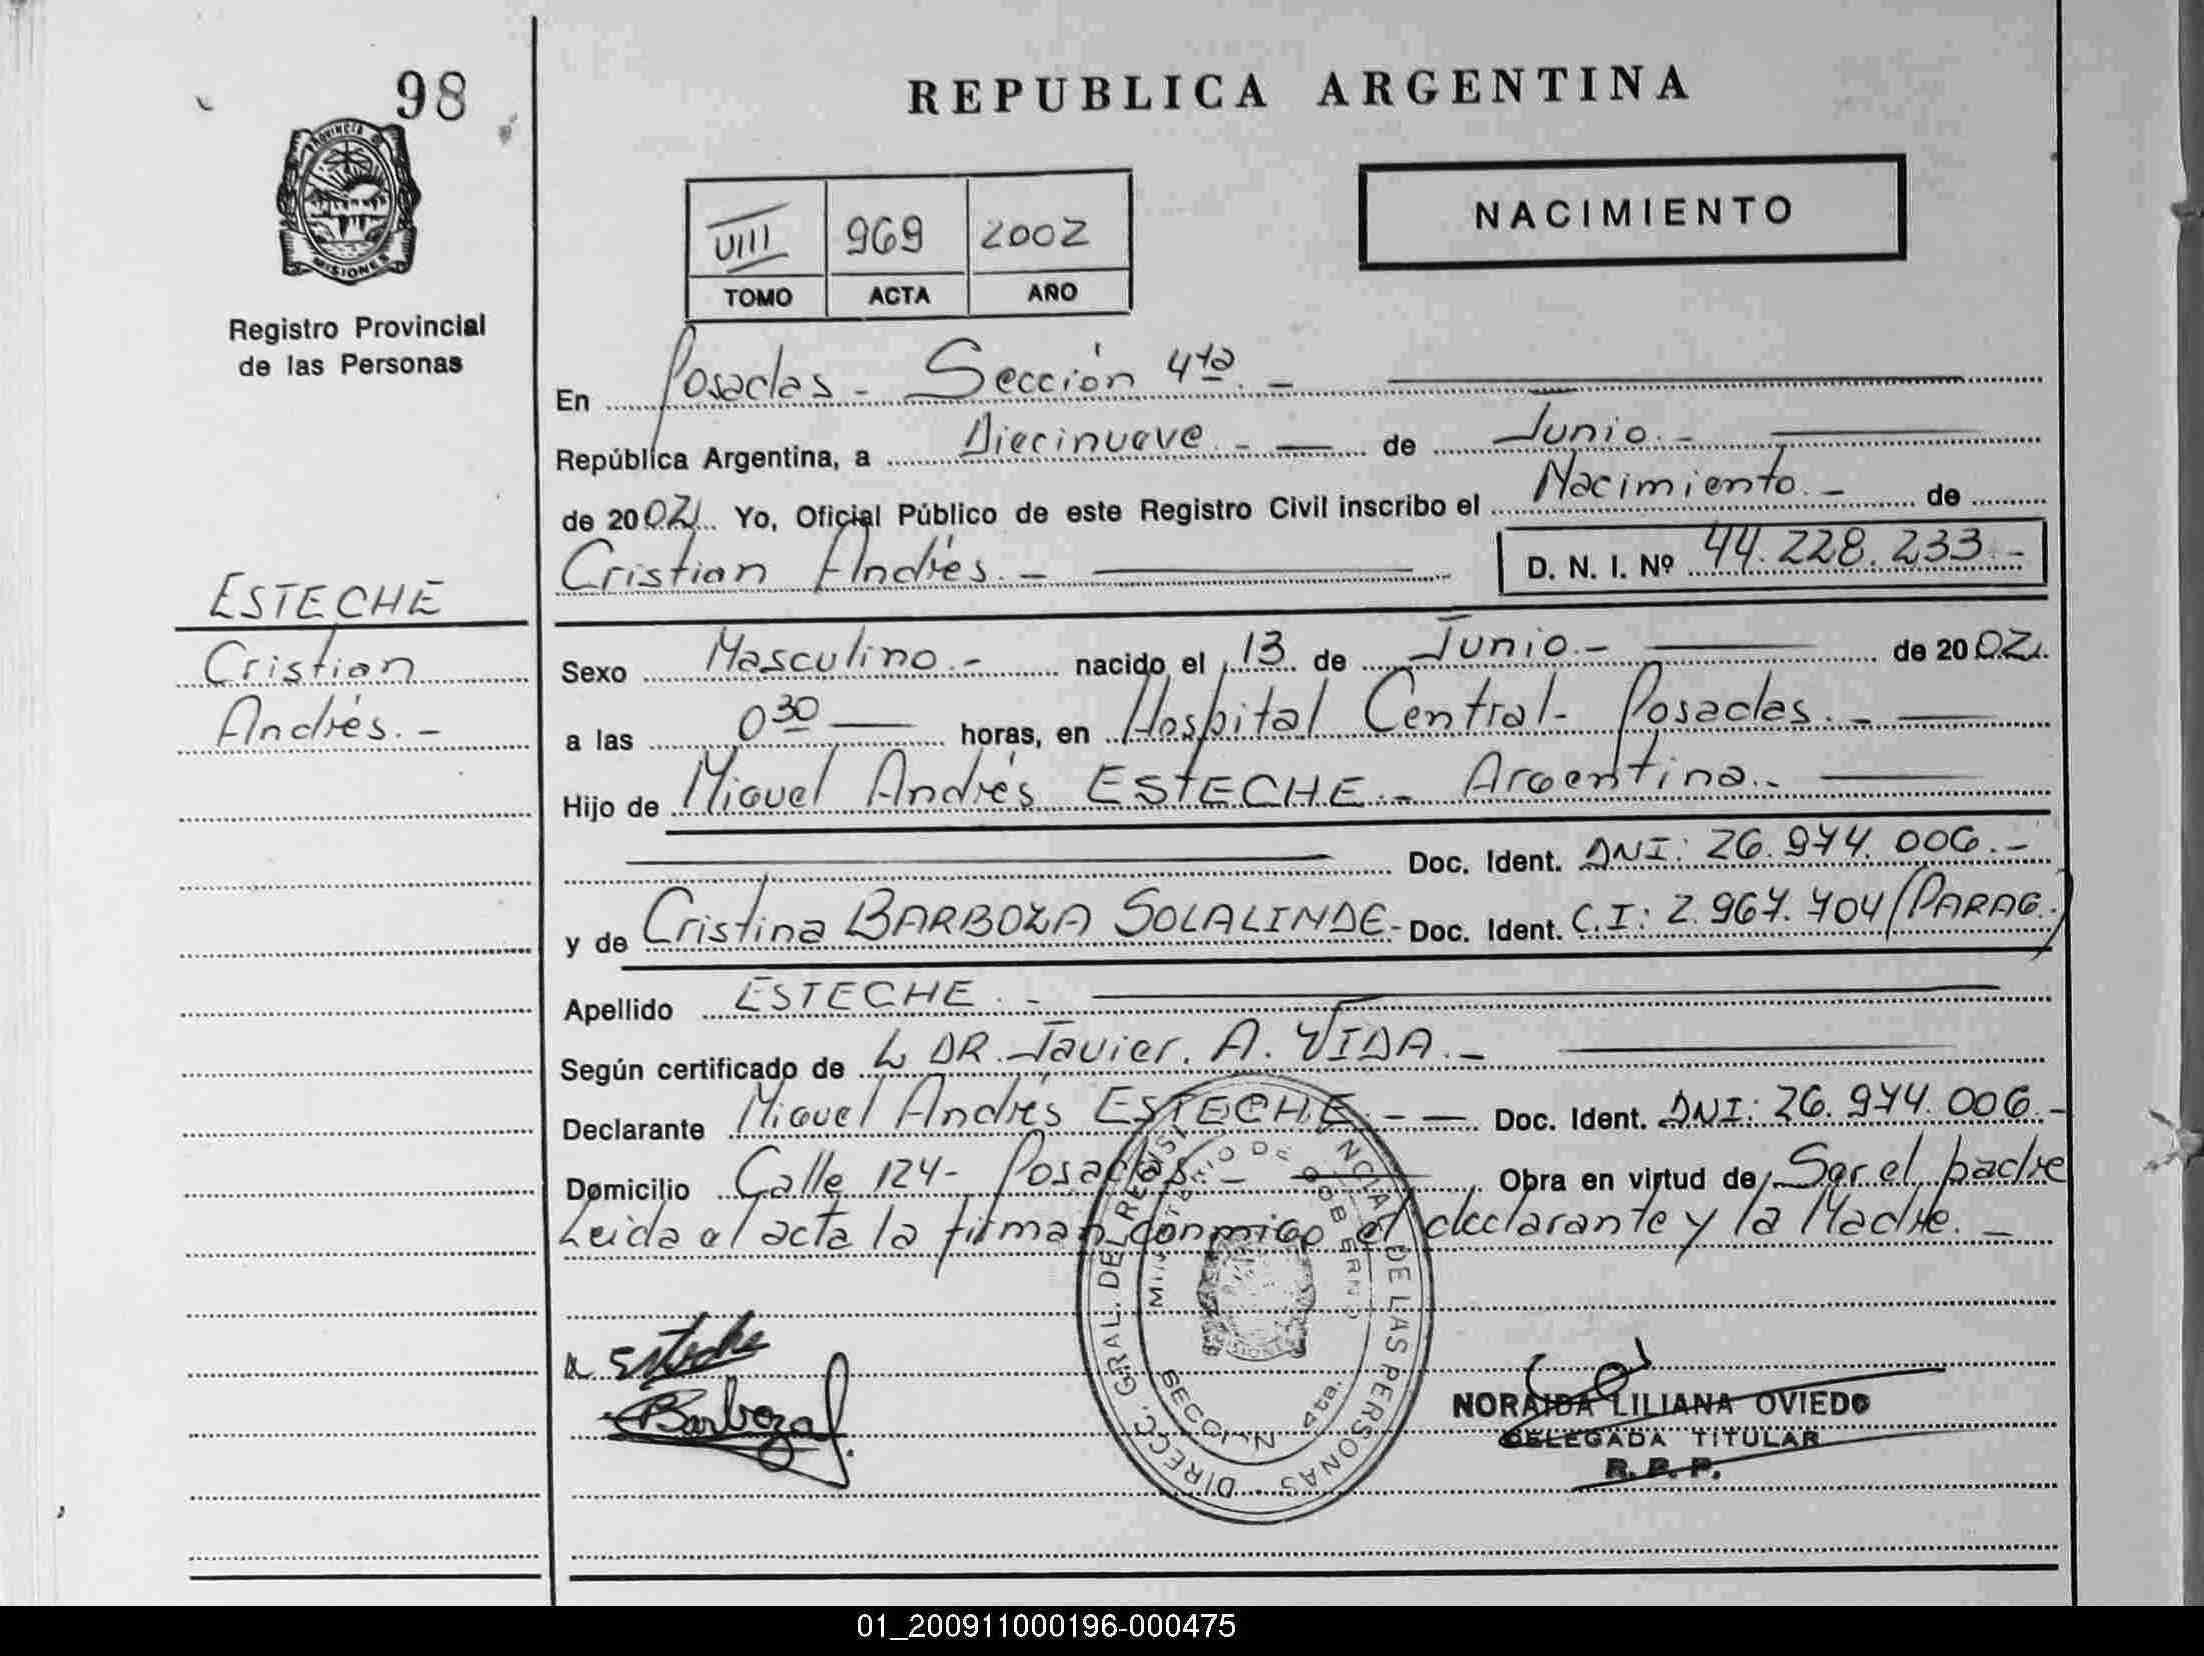 98
REPUBLICA ARGENTINA
PROVINCIA DE
MISIONES
Registro Provincial
de las Personas
VIII 969 2002
TOMO ACTA AÑO
NACIMIENTO
En Posadas - Sección 4ta. -
República Argentina, a Diecinueve. - de Junio. -
de 2002. Yo, Oficial Público de este Registro Civil inscribo el Nacimiento. - de
Cristian Andrés. - D. N. I. Nº 44.228.233. -
ESTECHE
Cristian
Andrés. -
Sexo Masculino. - nacido el 13 de Junio. - de 2002.
a las 0 30 horas, en Hospital Central - Posadas. -
Hijo de Miguel Andrés ESTECHE. - Argentina. -
Doc. Ident. DNI: 26.974.006. -
y de Cristina BARBOZA SOLALINDE - Doc. Ident. C.I: 2.967.704 (PARAG.)
Apellido ESTECHE. -
Según certificado de DR. Javier. A. VIDA. -
Declarante Miguel Andrés ESTECHE. - Doc. Ident. DNI: 26.974.006. -
Domicilio Calle 124 - Posadas. - Obra en virtud de Ser el padre
Leida el acta la firman conmigo el declarante y la Madre. -
Esteche
Barboza
DIRECC. GRAL. DEL REGIST. PROVINCIAL DE LAS PERSONAS
MINISTERIO DE GOBIERNO
SECCION 4ta.
NORAIDA LILIANA OVIEDO
DELEGADA TITULAR
R. P. P.
01_200911000196-000475